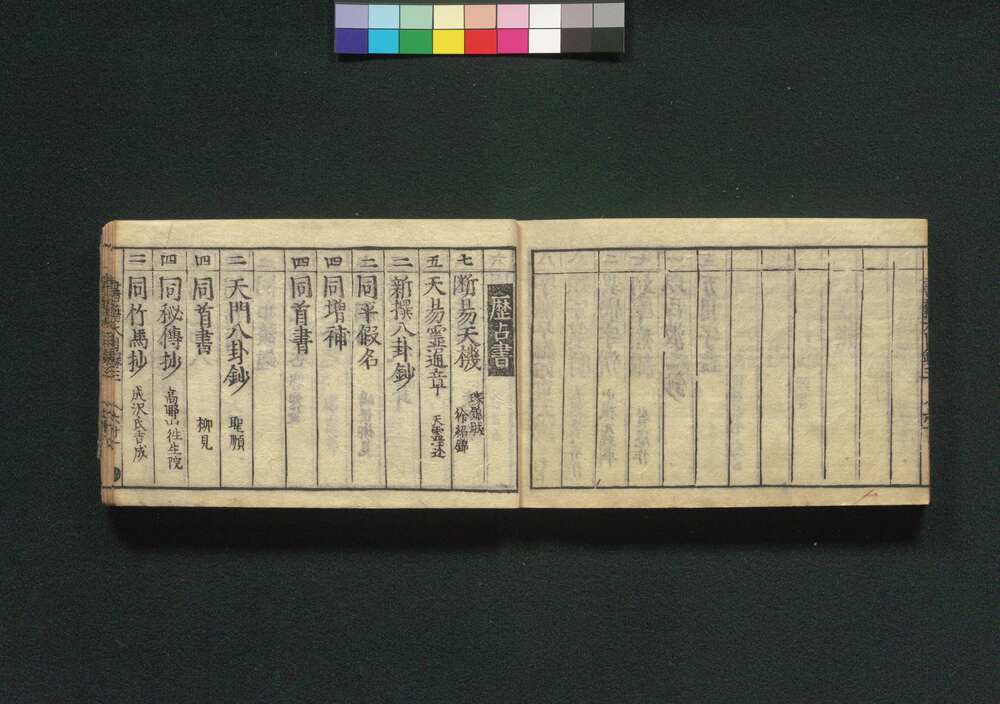 歷占書
七 断易天機 徐紹錦
五 天易靈通章
二 新撰八卦鈔
二 同平假名
四 同増補
四 同首書
二 天門八卦鈔 聖順
四 同首書 柳見
四 同秘傳抄 高野山往生院
二 同竹馬抄 成沢氏吉成